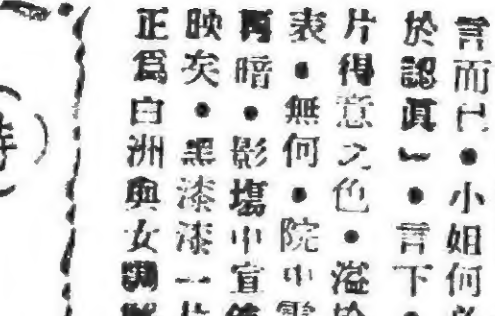 言而已●小姐何
於認眞」●言下●
片得意之色●溢於
表●無何●院中電
再暗●影場中宣
映矣●黑漆漆一片
正爲白洲與女調